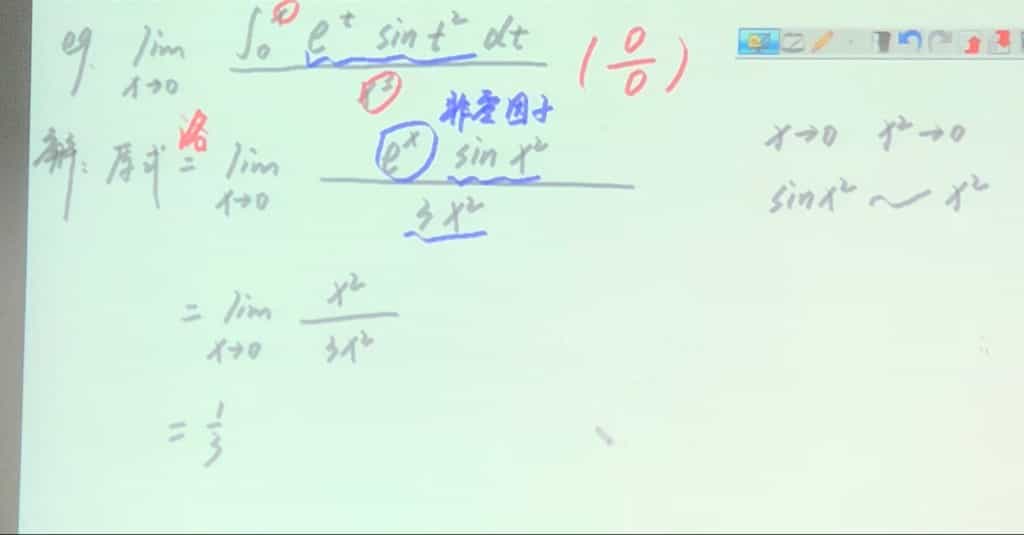 eg. lim x→0 ∫₀ˣ e^t sin t² dt / x³ (0/0)
非零因子
解: 原式 洛= lim x→0 e^x sin x² / 3x²
x→0 x²→0
sin x² ~ x²
= lim x→0 x² / 3x²
= 1/3